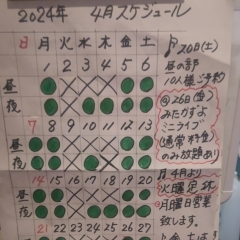 2024年 4月スケジュール
日 月 火 水 木 金 土
1 2 3 4 5 6
昼
夜
7 8 9 10 11 12 13
昼
夜
14 15 16 17 18 19 20
昼
夜
21 22 23 24 25 26 27
20日(土)
昼の部
10人様ご予約
26日(金)
みたりすよ
ミニライブ
(通常料金)
のみ放題あり
4月より
火曜定休
月曜日営業
致します。